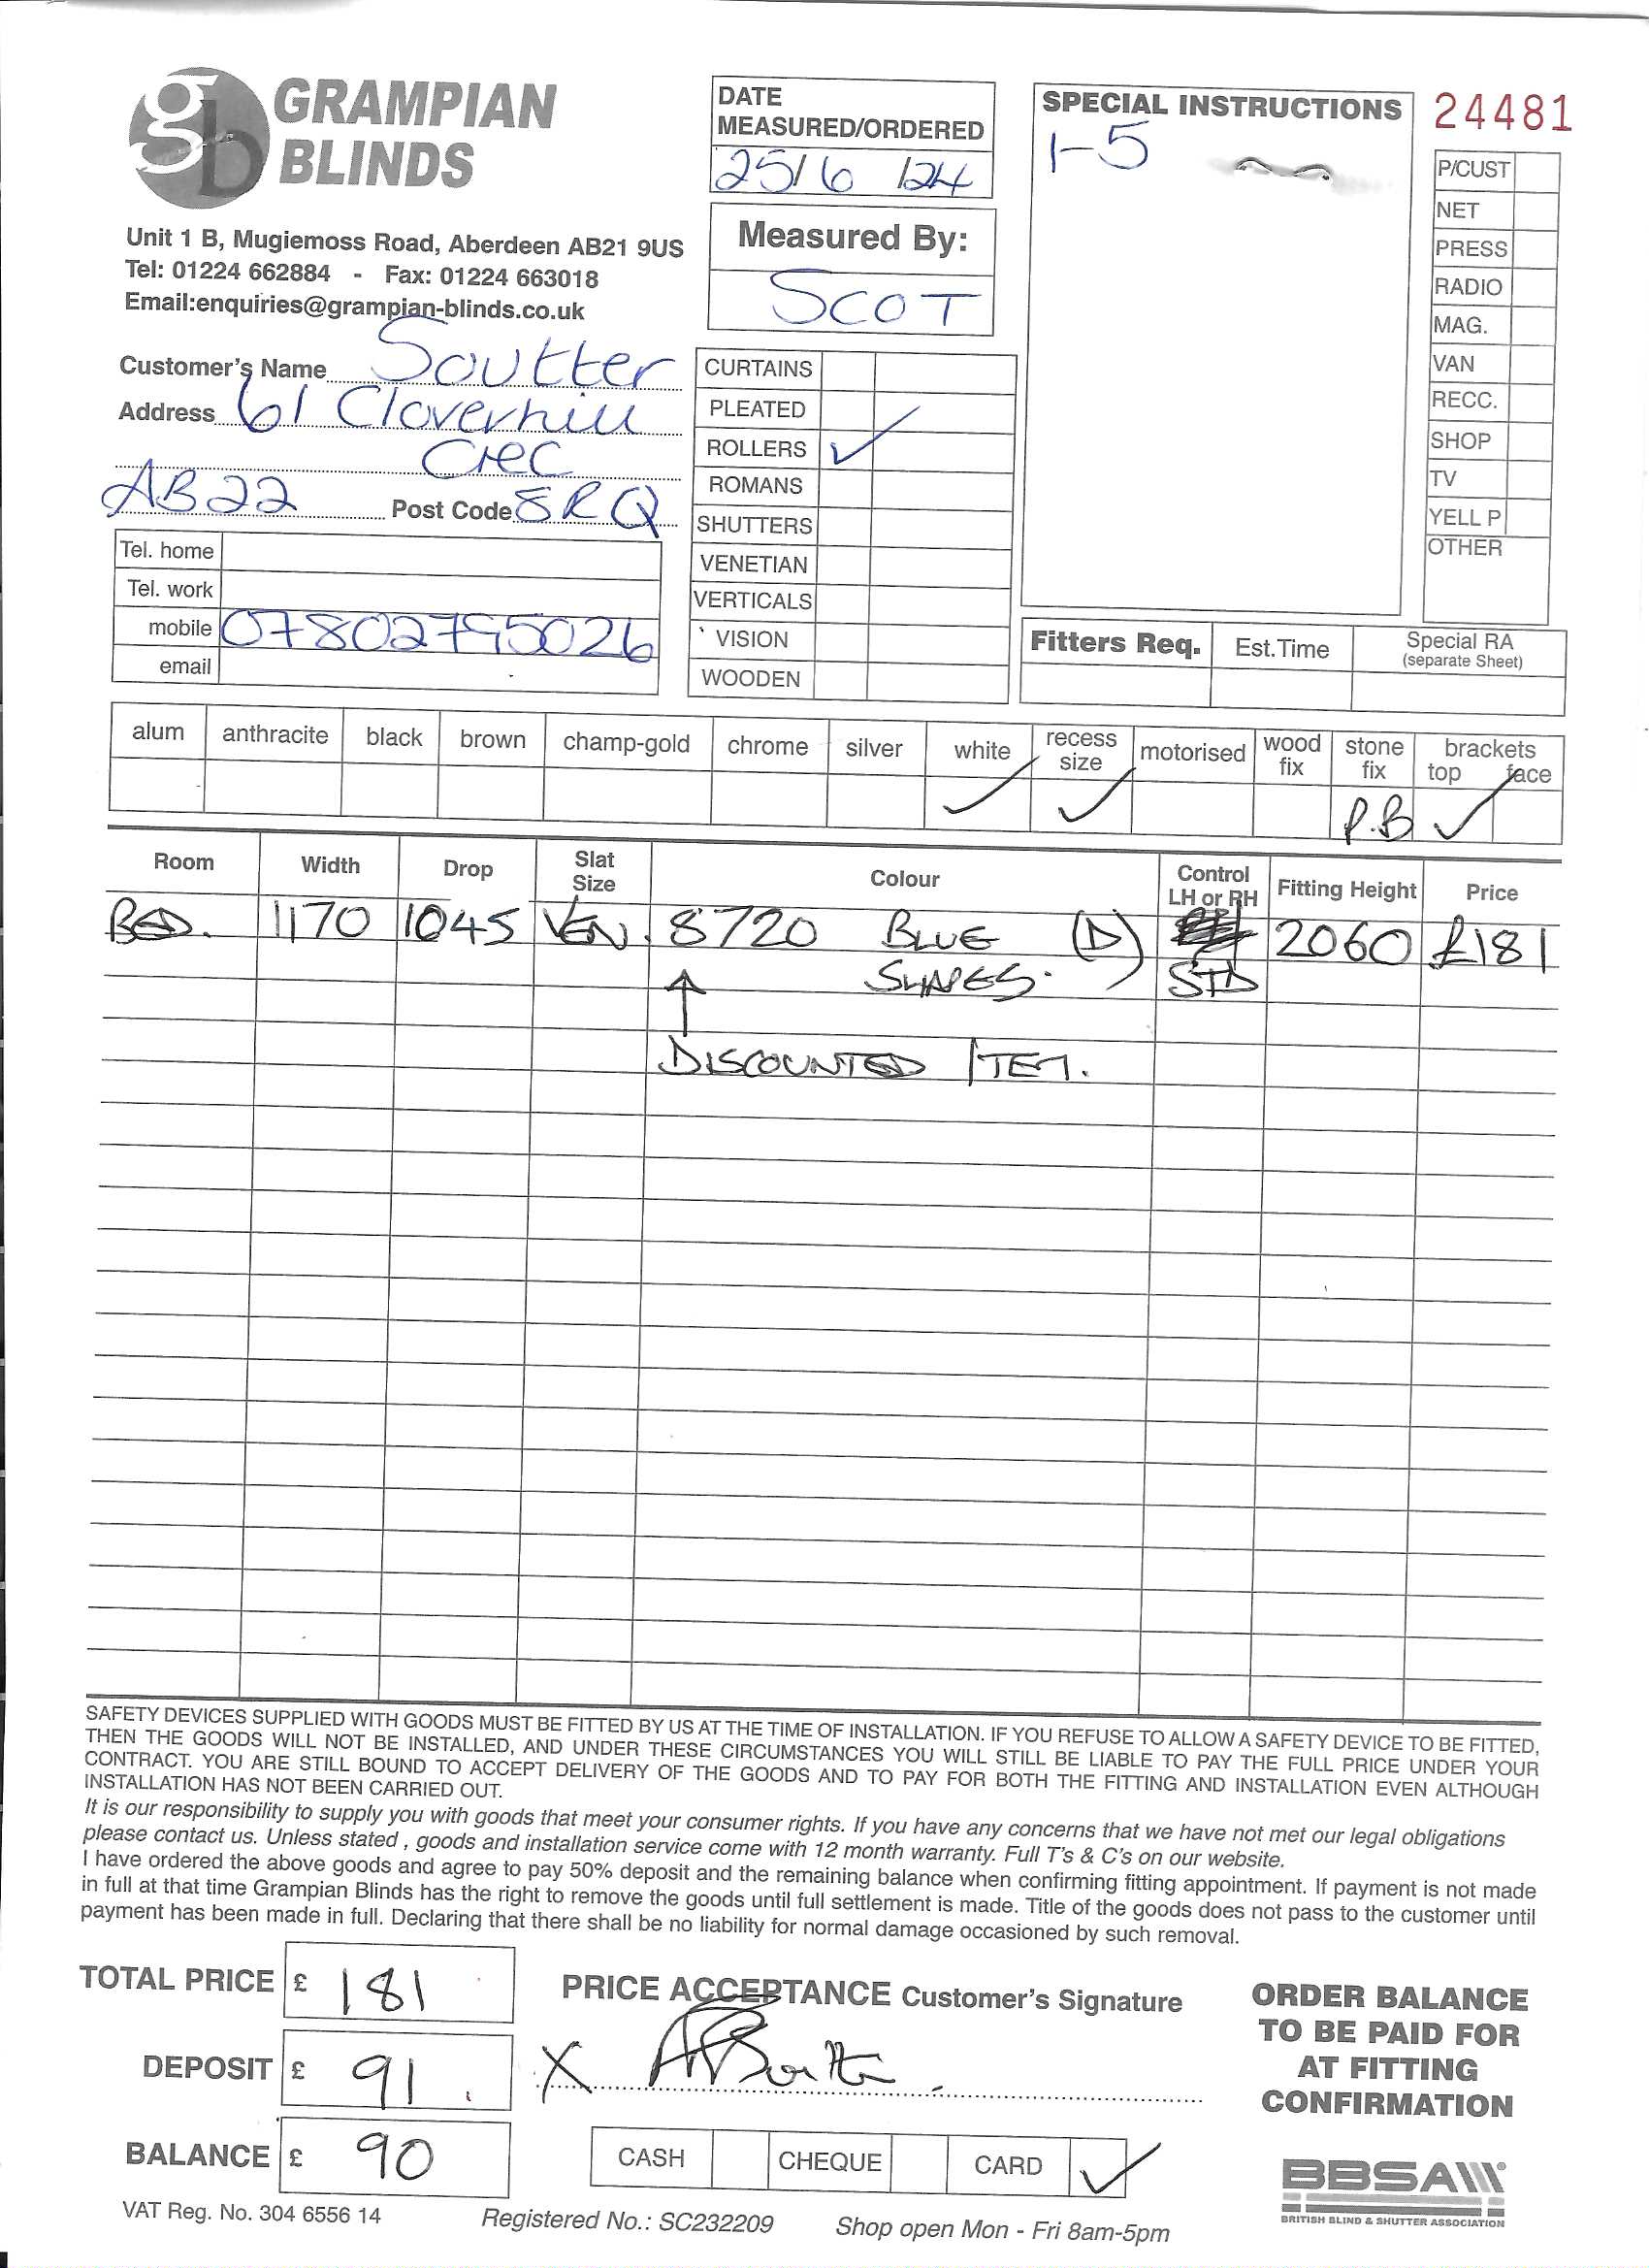 GRAMPIAN
BLINDS
Unit 1 B, Mugiemoss Road, Aberdeen AB21 9US
Tel: 01224 662884 - Fax: 01224 663018
Email:enquiries@grampian-blinds.co.uk
DATE
MEASURED/ORDERED
25/6/24
Measured By:
SCOT
SPECIAL INSTRUCTIONS
1-5
24481
P/CUST
NET
PRESS
RADIO
MAG.
VAN
RECC.
SHOP
TV
YELL P
OTHER
Customer's Name Soutter
Address 61 Cloverhill
Crec
AB22 Post Code 8RQ
Tel. home
Tel. work
mobile 07802795026
email
CURTAINS
PLEATED
ROLLERS ✓
ROMANS
SHUTTERS
VENETIAN
VERTICALS
VISION
WOODEN
Fitters Req. Est.Time Special RA
(separate Sheet)
alum anthracite black brown champ-gold chrome silver white recess size motorised wood fix stone fix brackets top face
✓ ✓ P.B ✓
Room Width Drop Slat Size Colour Control LH or RH Fitting Height Price
BED. 1170 1045 VEN. 8720 BLUE (D) 2060 £181
STD
↑
DISCOUNTED ITEM.
SAFETY DEVICES SUPPLIED WITH GOODS MUST BE FITTED BY US AT THE TIME OF INSTALLATION. IF YOU REFUSE TO ALLOW A SAFETY DEVICE TO BE FITTED,
THEN THE GOODS WILL NOT BE INSTALLED, AND UNDER THESE CIRCUMSTANCES YOU WILL STILL BE LIABLE TO PAY THE FULL PRICE UNDER YOUR
CONTRACT. YOU ARE STILL BOUND TO ACCEPT DELIVERY OF THE GOODS AND TO PAY FOR BOTH THE FITTING AND INSTALLATION EVEN ALTHOUGH
INSTALLATION HAS NOT BEEN CARRIED OUT.
It is our responsibility to supply you with goods that meet your consumer rights. If you have any concerns that we have not met our legal obligations
please contact us. Unless stated , goods and installation service come with 12 month warranty. Full T's & C's on our website.
I have ordered the above goods and agree to pay 50% deposit and the remaining balance when confirming fitting appointment. If payment is not made
in full at that time Grampian Blinds has the right to remove the goods until full settlement is made. Title of the goods does not pass to the customer until
payment has been made in full. Declaring that there shall be no liability for normal damage occasioned by such removal.
TOTAL PRICE £ 181
DEPOSIT £ 91.
BALANCE £ 90
PRICE ACCEPTANCE Customer's Signature
X
CASH CHEQUE CARD ✓
ORDER BALANCE
TO BE PAID FOR
AT FITTING
CONFIRMATION
BBSA
BRITISH BLIND & SHUTTER ASSOCIATION
VAT Reg. No. 304 6556 14 Registered No.: SC232209 Shop open Mon - Fri 8am-5pm